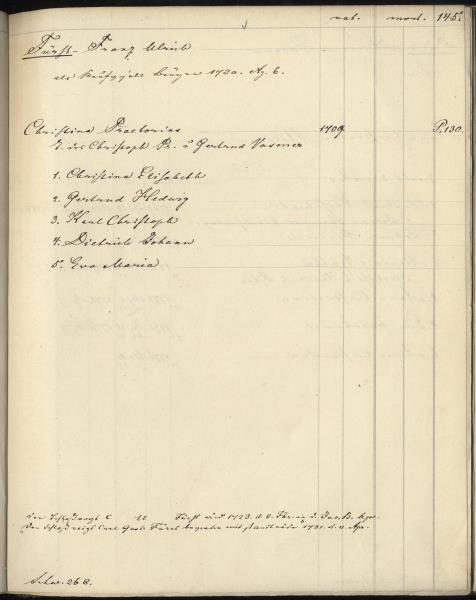 nat. mort. 145.
Fürst - Franz Ulrich
als Kaufgesell Bürger 1730. Ag. 6.
Christina Praetorius 1709 P. 130.
T. des Christoph Pr. u Gertrud Vasmer
1. Christina Elisabeth
2. Gertrud Hedwig
3. Karl Christoph
4. Dietrich Johann
5. Eva Maria
Der C U Fürst wird 1723. d. 8.
Der Carl Fürst mit 1731. d. 11. Apr.
Schw. 268.